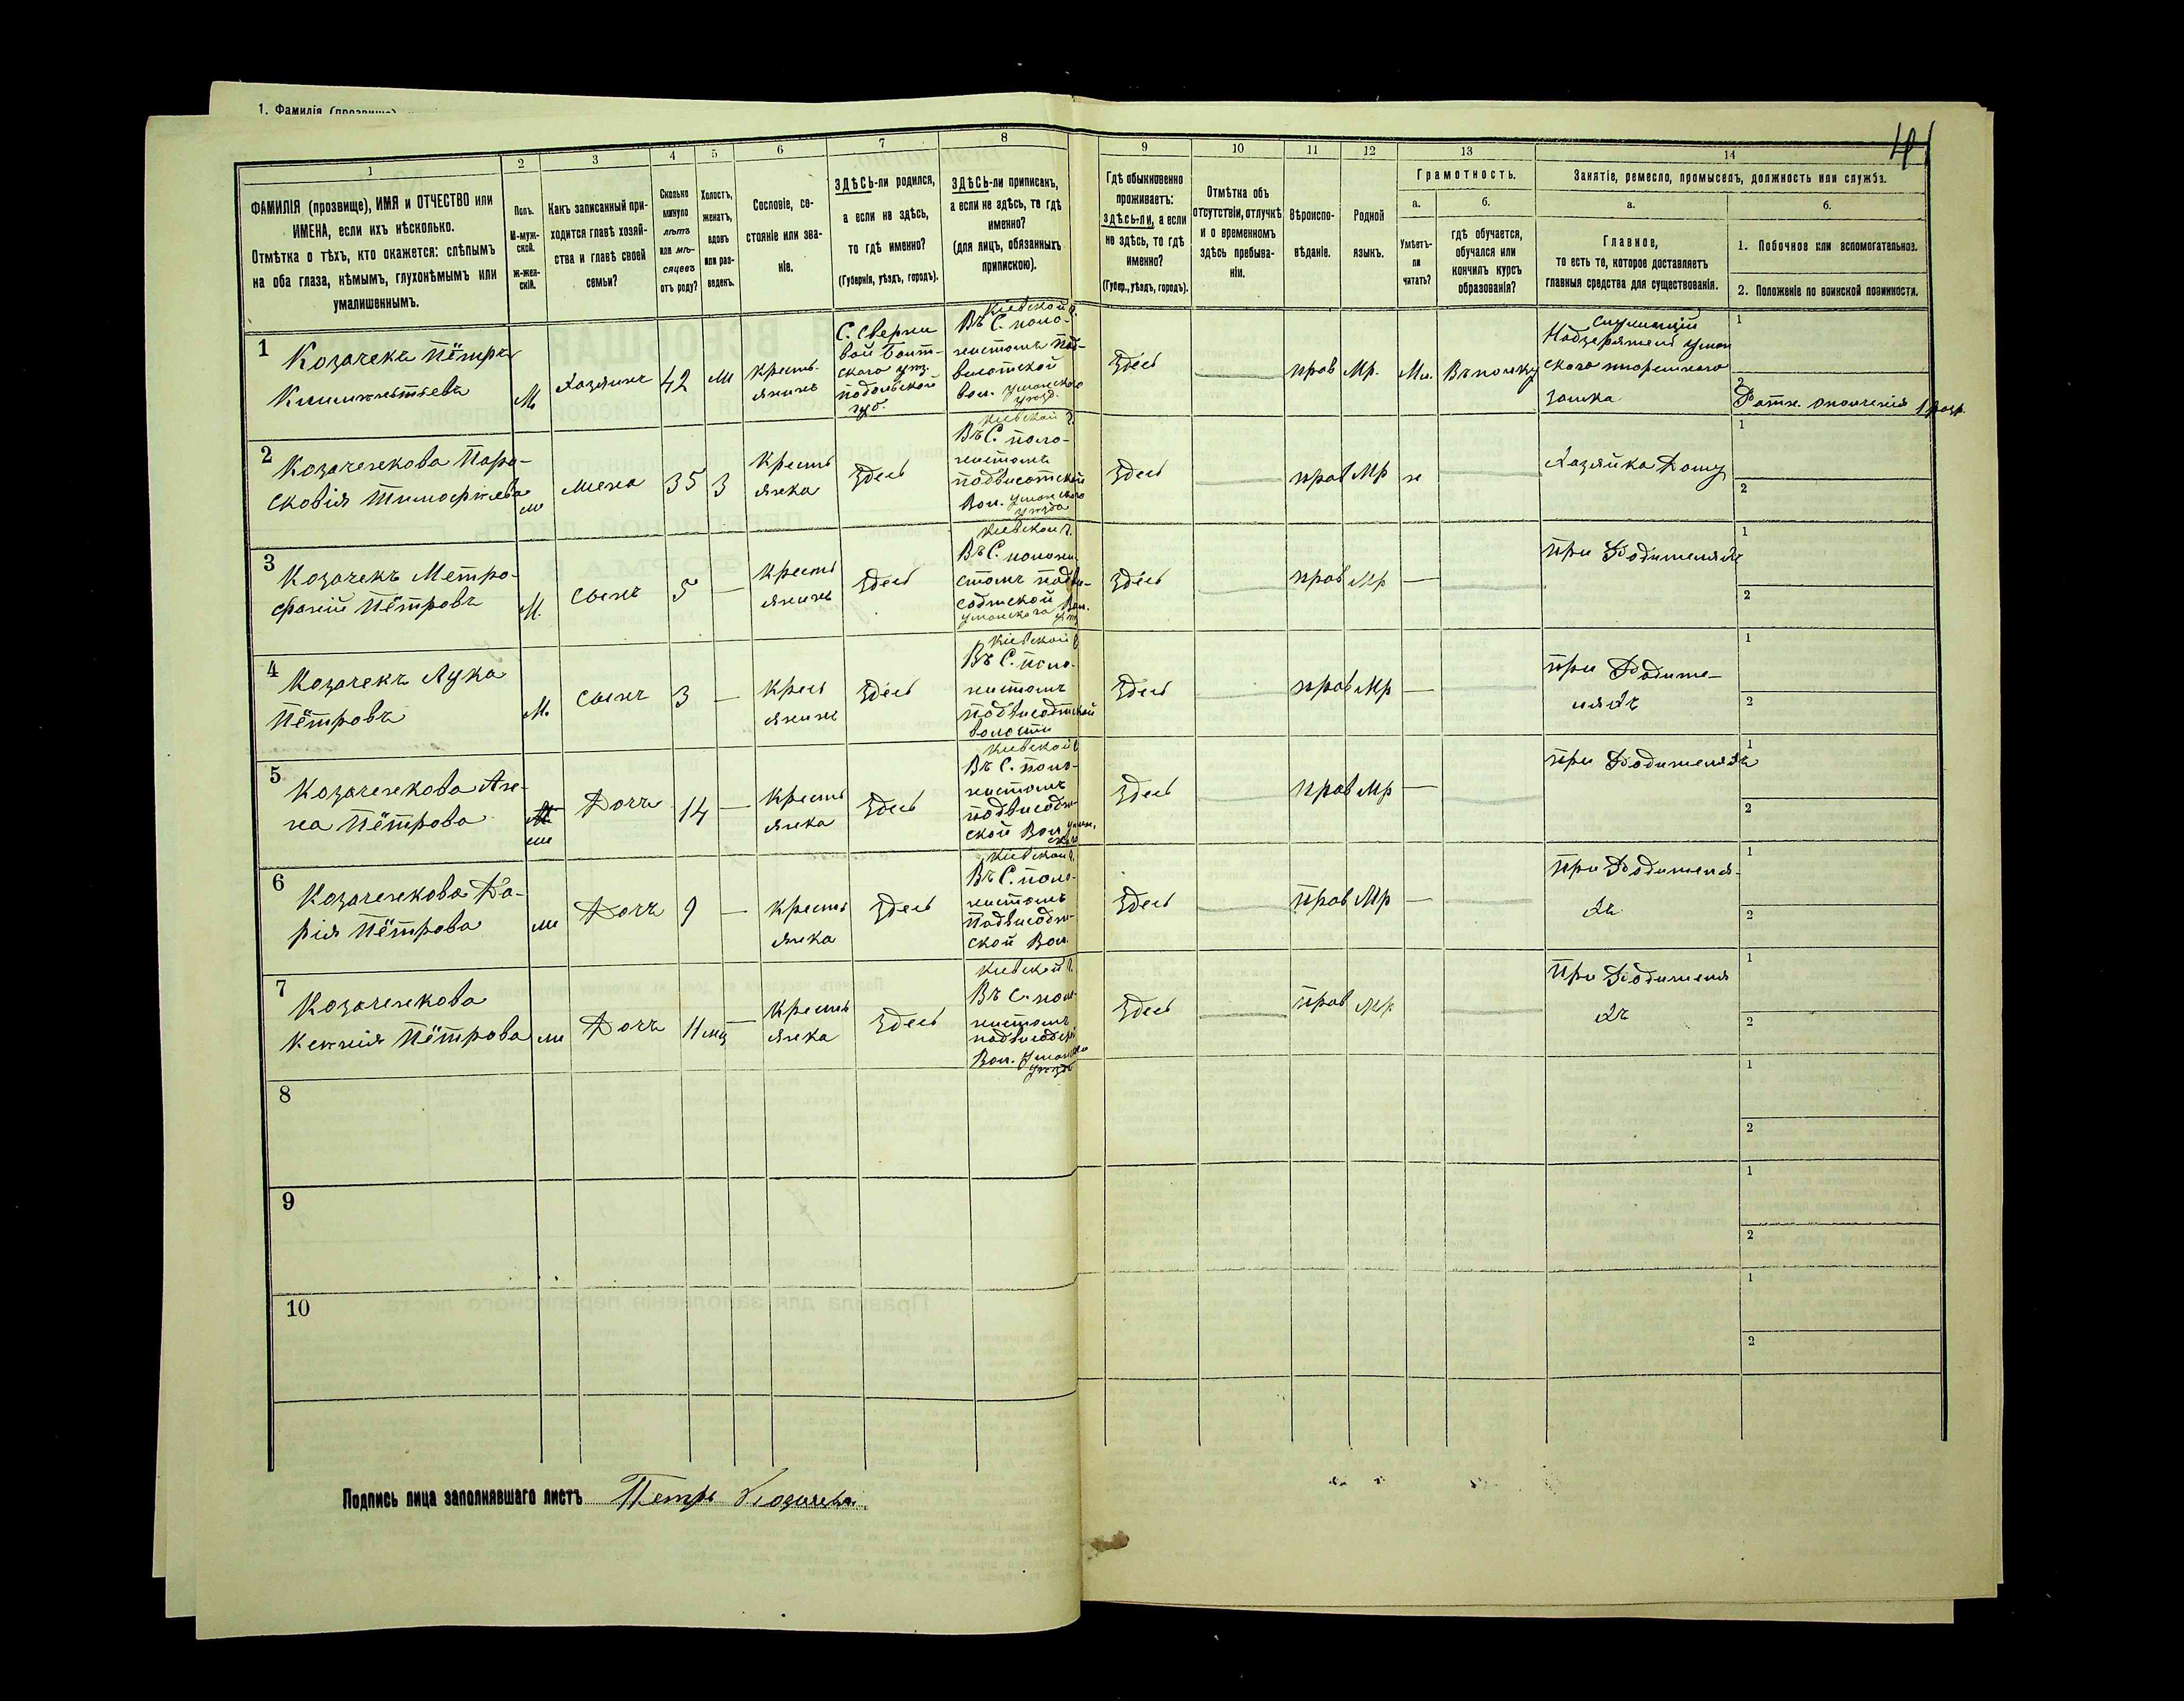 1. Фамилія (прозвище)
1
2
3
4
5
6
7
8
9
10
11
12
13
14
ФАМИЛІЯ (прозвище), ИМЯ и ОТЧЕСТВО или
ИМЕНА, если ихъ нѣсколько.
Отмѣтка о тѣхъ, кто окажется: слѣпымъ
на оба глаза, нѣмымъ, глухонѣмымъ или
умалишеннымъ.
Полъ.
М-муж-
ской.
Ж-жен-
скій.
Какъ записанный при-
ходится главѣ хозяй-
ства и главѣ своей
семьи?
Сколько
минуло
лѣтъ
или мѣ-
сяцевъ
отъ роду?
Холостъ,
женатъ,
вдовъ
или раз-
веденъ.
Сословіе, со-
стояніе или зва-
ніе.
ЗДѢСЬ-ли родился,
а если не здѣсь,
то гдѣ именно?
(Губернія, уѣздъ, городъ).
ЗДѢСЬ-ли приписанъ,
а если не здѣсь, то гдѣ
именно?
(для лицъ, обязанныхъ
припискою).
Гдѣ обыкновенно
проживаетъ:
здѣсь-ли, а если
не здѣсь, то гдѣ
именно?
(Губер., уѣздъ, городъ).
Отмѣтка объ
отсутствіи, отлучкѣ
и о временномъ
здѣсь пребыва-
ніи.
Вѣроиспо-
вѣданіе.
Родной
языкъ.
Грамотность.
а.
Умѣетъ-
ли
читать?
б.
гдѣ обучается,
обучался или
кончилъ курсъ
образованія?
Занятіе, ремесло, промыселъ, должность или служба.
а.
Главное,
то есть то, которое доставляетъ
главныя средства для существованія.
б.
1. Побочное или вспомогательное.
2. Положеніе по воинской повинности.
1
Козачекъ Пётръ
М.
Хозяинъ
42
Ж
Кресть-
янинъ
подольской
губ.
Кіевской г.
Въ С. поло-
Здесь
прав
Мр.
Служащій
ского тюремнаго
замка
1
2
Ратн. ополченія 1 разр.
2
Козаченкова Пара-
сковія Тимофѣева
ж
жена
35
З
Кресть
янка
Здесь
Кіевской г.
Въ С. поло-
жистомъ
Вол. Уманского
уѣзда
Здесь
прав
Мр
н
Хозяйка Дому
1
2
3
Козачекъ Метро-
фаній Пётровъ
М.
сынъ
5
—
Кресть
янинъ
Здесь
Кіевской г.
Здесь
прав
Мр
—
при Родителяхъ
1
2
4
Козачекъ Лука
Пётровъ
М.
сынъ
3
—
Кресть
янинъ
Здесь
Кіевской г
Въ С. поло-
жистомъ
волости
Здесь
прав
Мр
—
при Родите-
ляхъ
1
2
5
Козаченкова Ан-
на Пётрова
ж
Дочь
14
—
Кресть
янка
Здесь
Кіевской г
Въ С. поло-
жистомъ
ской Вол
Здесь
прав
Мр
—
при Родителяхъ
1
2
6
Козаченкова Да-
рія Пётрова
ж
Дочь
9
—
Кресть
янка
Здесь
Кіевской г.
Въ С. поло-
жистомъ
ской Вол.
Здесь
прав
Мр
—
При Родителя-
хъ
1
2
7
Козаченкова
Ксенія Пётрова
ж
Дочь
11 мц
—
Кресть
янка
Здесь
Кіевской г.
Въ С. поло-
жистомъ
Здесь
прав
Мр
При Родителя
хъ
1
2
8
1
2
9
1
2
10
1
2
Подпись лица заполнявшаго листъ Петръ Козачекъ.